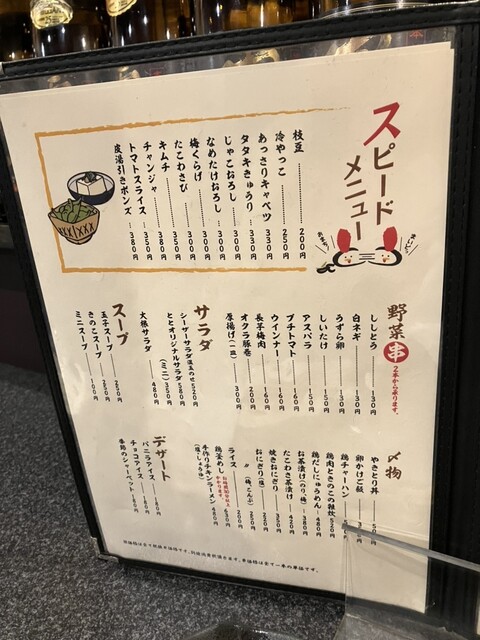 スピード
メニュー
枝豆 200円
冷やっこ 250円
あっさりキャベツ 330円
タタキきゅうり 330円
じゃこおろし 300円
なめたけおろし 300円
梅くらげ 300円
たこわさび 350円
キムチ 380円
チャンジャ 380円
トマトスライス 350円
皮湯引きポンズ 380円
野菜串
2本から承ります。
ししとう 130円
白ネギ 130円
うずら卵 130円
しいたけ 150円
アスパラ 150円
プチトマト 160円
ウインナー 160円
長芋梅肉 160円
オクラ豚巻 200円
厚揚げ(一皿) 300円
サラダ
シーザーサラダ温玉のせ 520円
ととオリジナルサラダ 580円
(ミニ) 350円
大根サラダ 480円
スープ
玉子スープ 250円
きのこスープ 250円
ミニスープ 100円
〆物
やきとり丼
卵かけご飯
鶏チャーハン
鶏肉ときのこの雑炊 520円
鶏だしにゅうめん 480円
お茶漬け(のり、梅) 380円
たこわさ茶漬け 420円
焼きおにぎり 350円
おにぎり(塩) 200円
〃(梅、こんぶ) 250円
ライス 200円
鶏釜めし 630円
お時間30分以上かかります。
手作りチキンラーメン 480円
(塩・しょうゆ)
デザート
バニラアイス
チョコアイス
季節のシャーベット
※価格は全て税抜き価格です。別途消費税頂きます。串価格は全て一本の単価です。